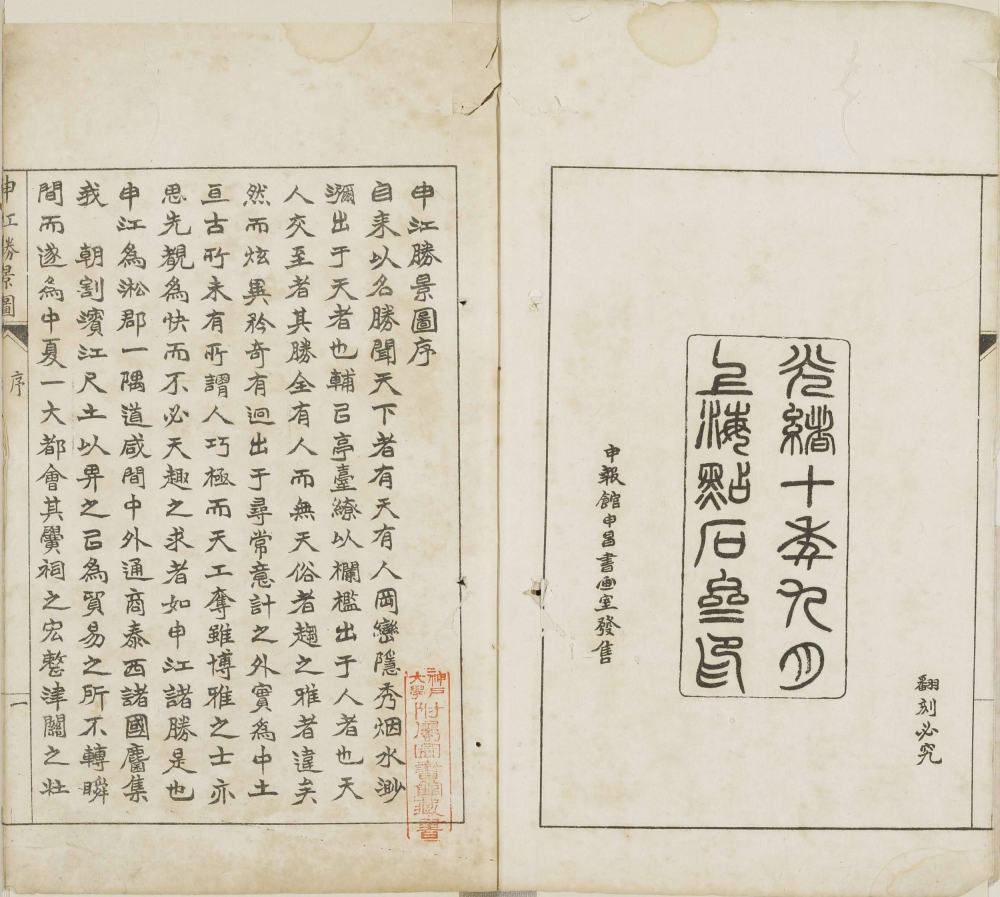 光緒十年九月
上海點石齋印
申報館申昌書画室發售
翻刻必究
申江勝景圖序
自來以名勝聞天下者有天有人岡巒隱秀烟水渺
瀰出于天者也輔㠯亭臺繚以欄檻出于人者也天
人交至者其勝全有人而無天俗者趨之雅者違矣
然而炫異矜奇有迥出于尋常意計之外實爲中土
亘古所未有所謂人巧極而天工奪雖博雅之士亦
思先覩爲快而不必天趣之求者如申江諸勝是也
申江爲淞郡一隅道咸間中外通商泰西諸國麕集
我　朝割濱江尺土以畀之㠯爲貿易之所不轉瞬
間而遂爲中夏一大都會其黌祠之宏整津關之壯
申江勝景圖
序
一
神戶
大學
附屬圖書館藏書